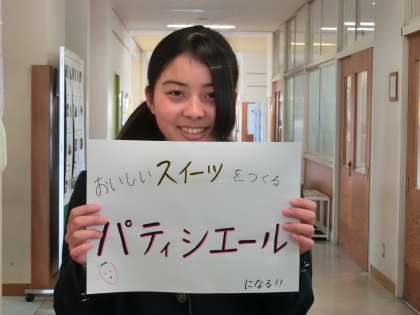 おいしいスイーツをつくる
パティシエール
になる!!